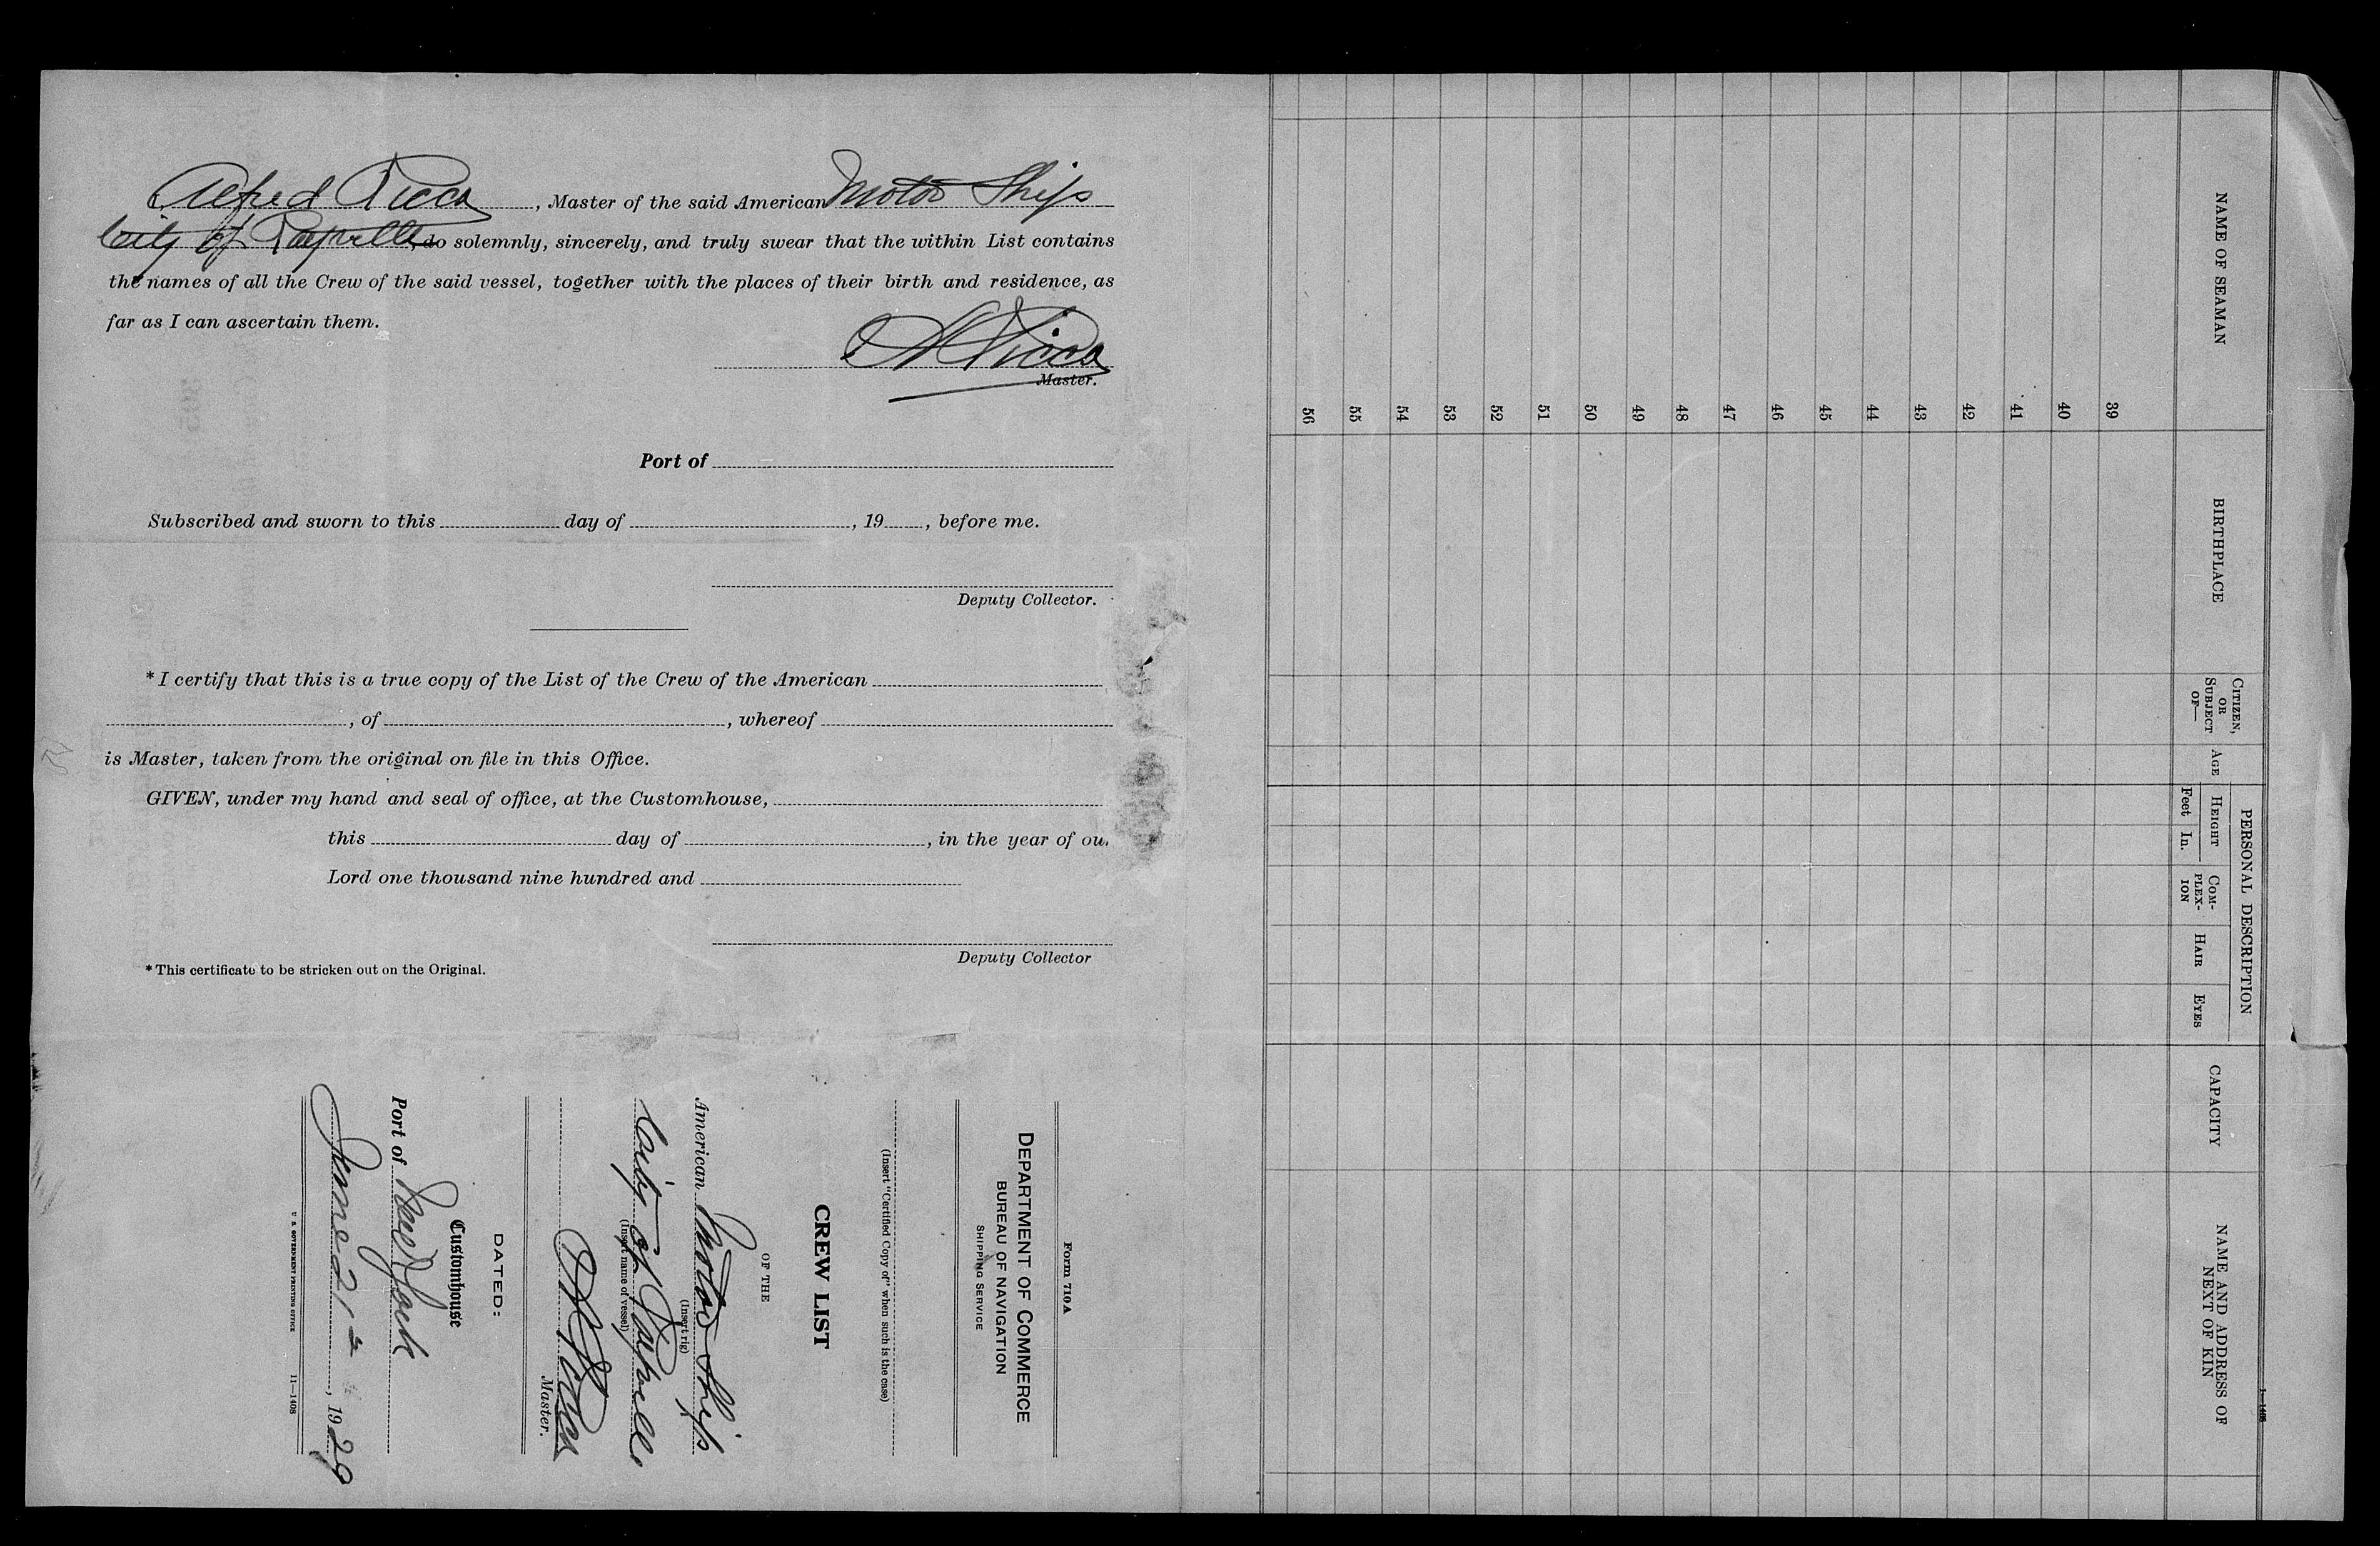 Alfred Ricca, Master of the said American Motor Ship
City of Rayville, do solemnly, sincerely, and truly swear that the within List contains
the names of all the Crew of the said vessel, together with the places of their birth and residence, as
far as I can ascertain them.
A Ricca
Master.
Port of
Subscribed and sworn to this day of , 19 , before me.
Deputy Collector.
*I certify that this is a true copy of the List of the Crew of the American
, of , whereof
is Master, taken from the original on file in this Office.
GIVEN, under my hand and seal of office, at the Customhouse,
this day of , in the year of ou
Lord one thousand nine hundred and
Deputy Collector
*This certificate to be stricken out on the Original.
Form 710 A
DEPARTMENT OF COMMERCE
BUREAU OF NAVIGATION
SHIPPING SERVICE
(Insert "Certified Copy of" when such is the case)
CREW LIST
OF THE
American Motor Ship
(Insert rig)
City of Rayville
(Insert name of vessel)
A Ricca
Master.
DATED:
Customhouse
Port of New York
June 21, 1929
U. S. GOVERNMENT PRINTING OFFICE 11—1408
1—1408
NAME OF SEAMAN
BIRTHPLACE
CITIZEN, OR SUBJECT OF—
PERSONAL DESCRIPTION
AGE
HEIGHT
Feet In.
COMPLEX-ION
HAIR
EYES
CAPACITY
NAME AND ADDRESS OF NEXT OF KIN
39
40
41
42
43
44
45
46
47
48
49
50
51
52
53
54
55
56